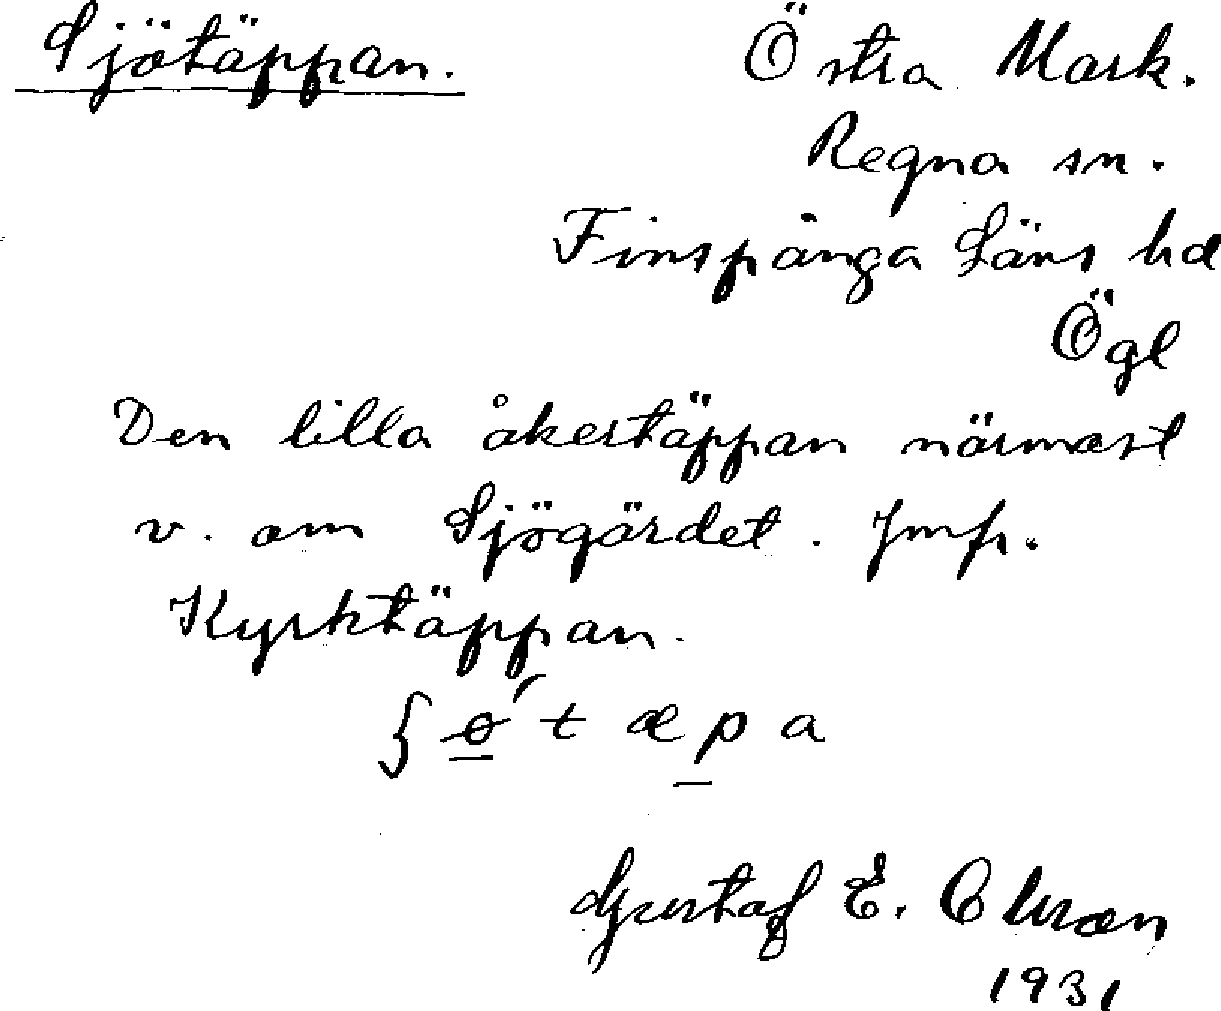 Sjötäppan. Östra Mark.
Regna sn.
Finspånga Läns hd
Ögl
Den lilla åkertäppan närmast
v. om Sjögärdet. Jmfr.
Kyrktäppan.
ʃ ø ́ t æ p a
Gustaf E.
1931